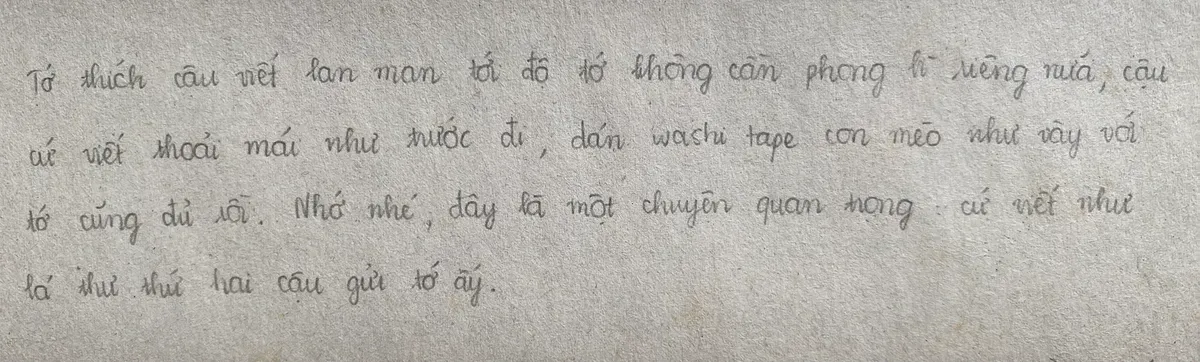 Tớ thích cậu viết lan man tới độ tớ không cần phong bì riêng nữa, cậu
cứ viết thoải mái như trước đi, dán washi tape con mèo như vậy với
tớ cũng đủ rồi. Nhớ nhé, đây là một chuyện quan trọng : cứ viết như
lá thư thứ hai cậu gửi tớ ấy.